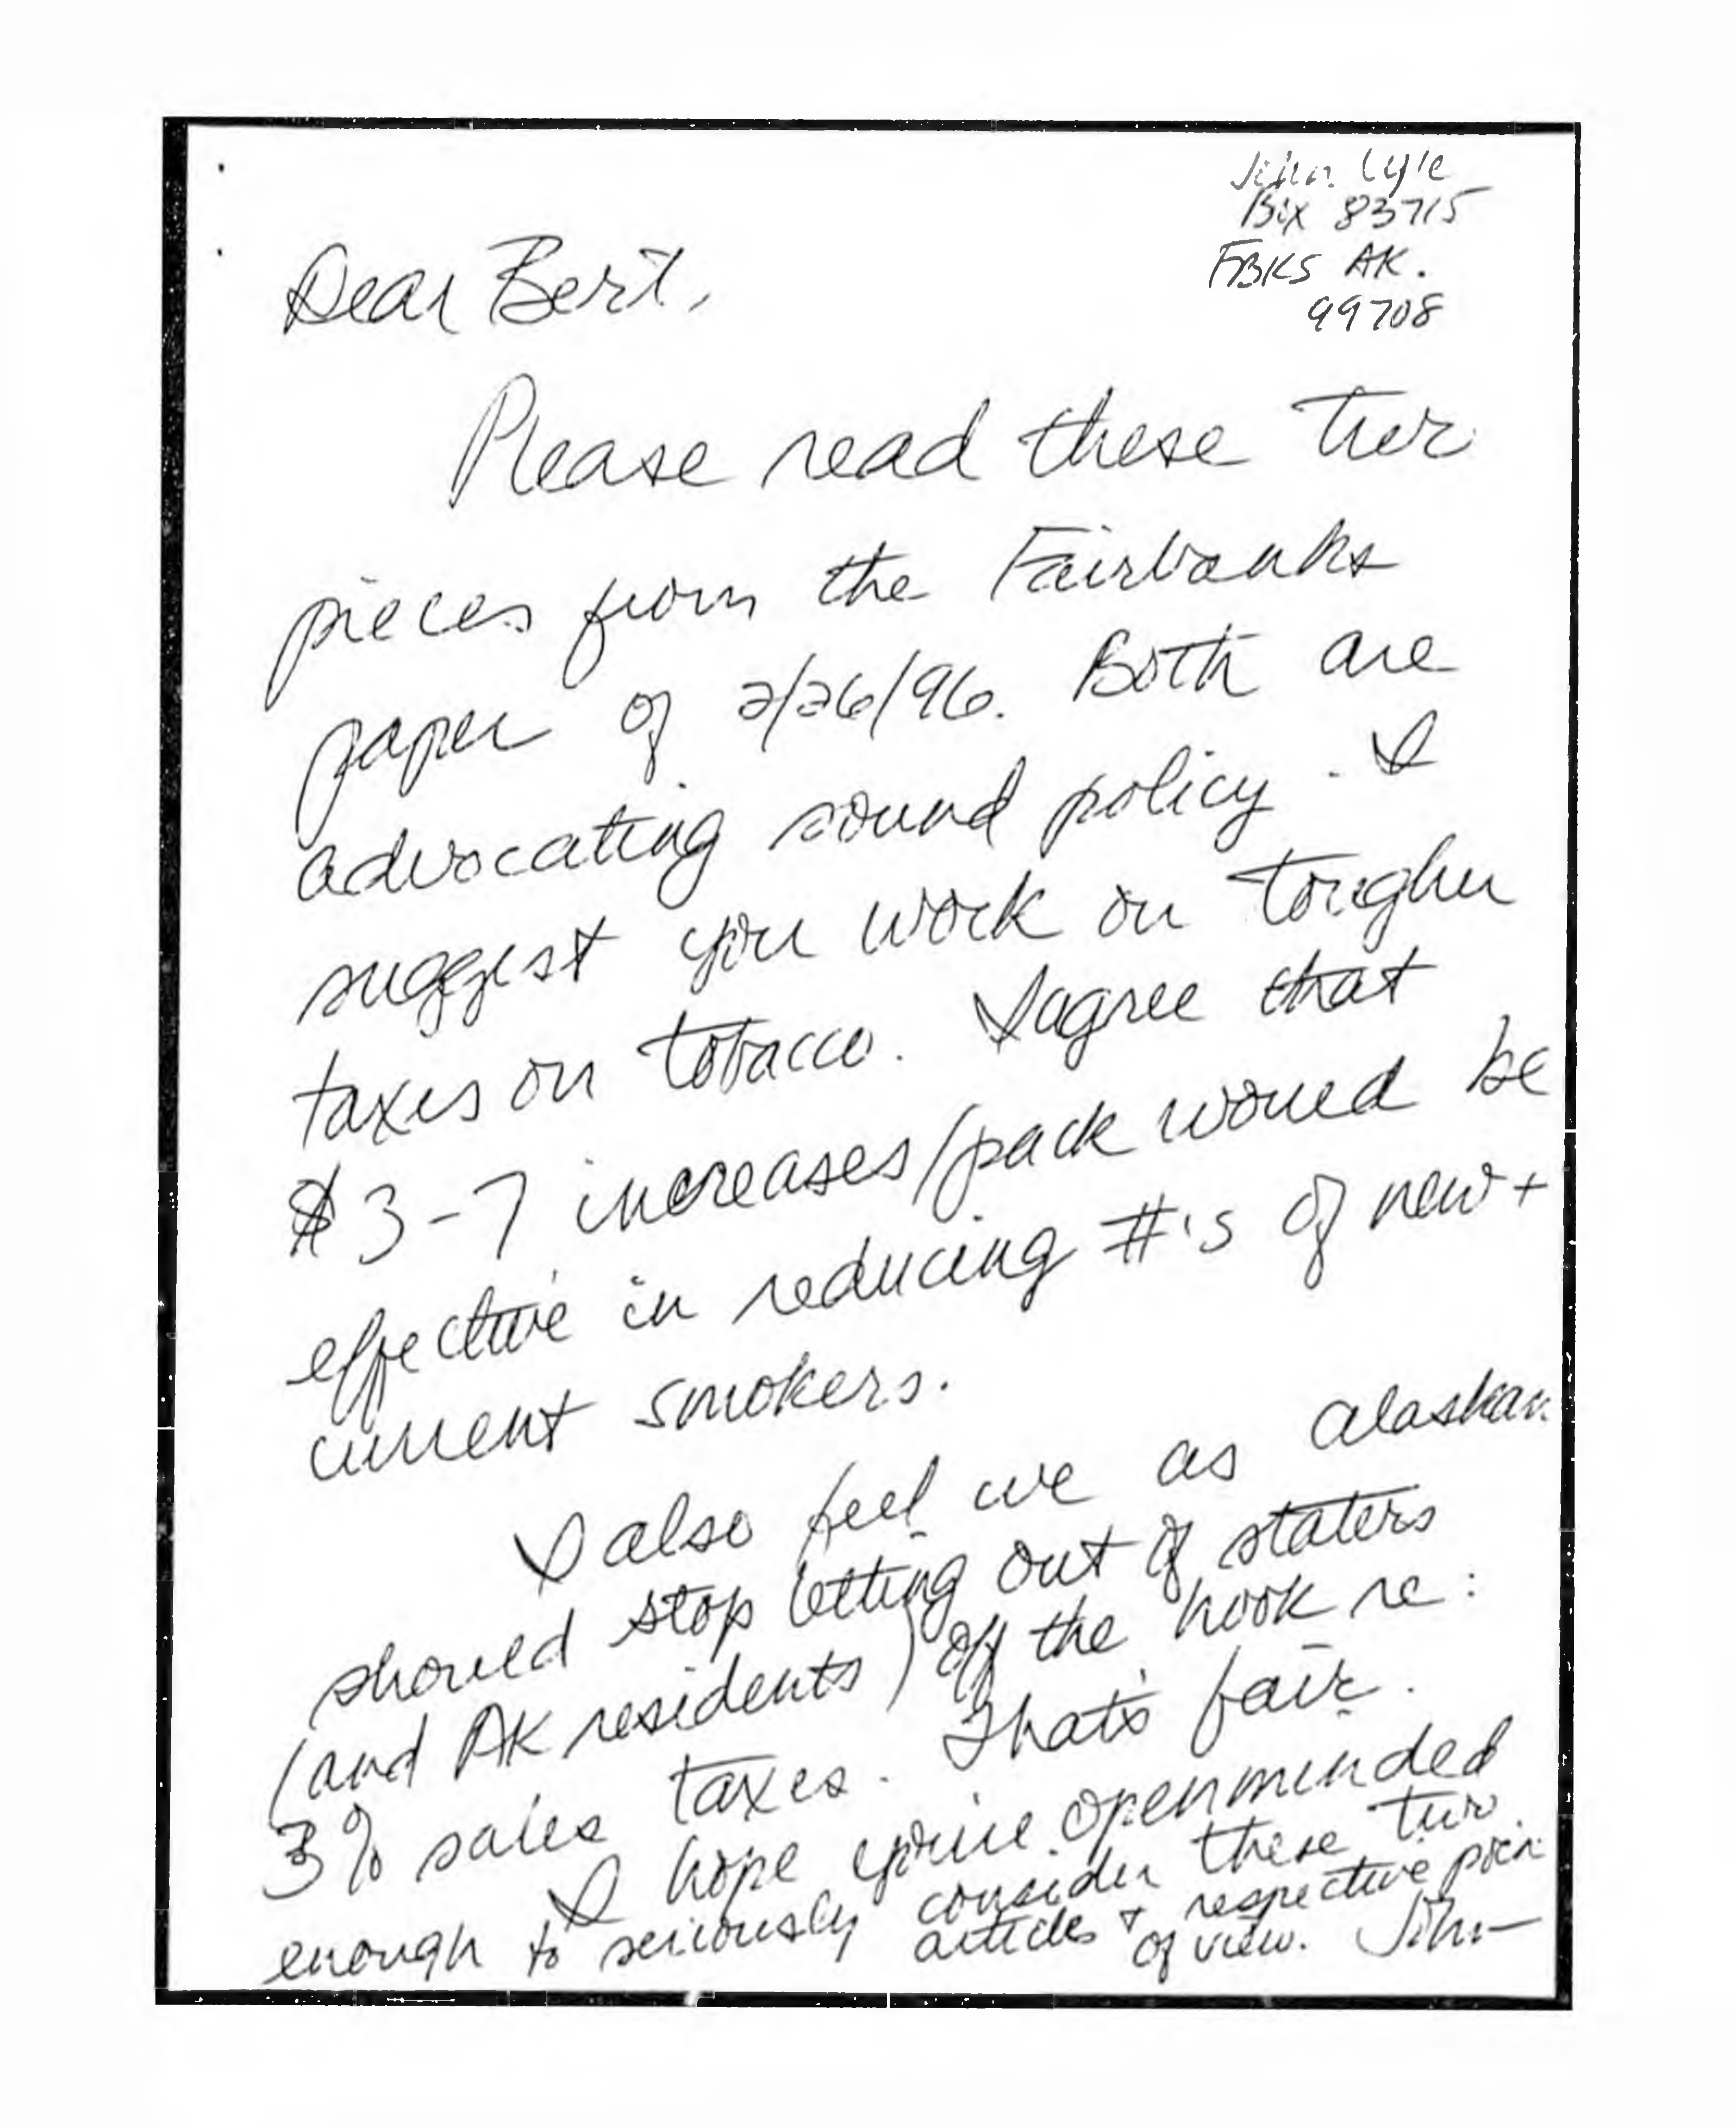 John Lyle
Box 83715
FBKS AK.
99708
Dear Bert,
Please read these two
pieces from the Fairbanks
paper of 2/26/96. Both are
advocating sound policy. I
suggest you work on tougher
taxes on tobacco. I agree that
$3-7 increases/pack would be
effective in reducing #'s of new +
current smokers.
I also feel we as Alaskan
should stop letting out of staters
(and AK residents) off the hook re:
3% sales taxes. That's fair.
I hope you're openminded
enough to seriously consider these two
articles + respective poin
of view. John